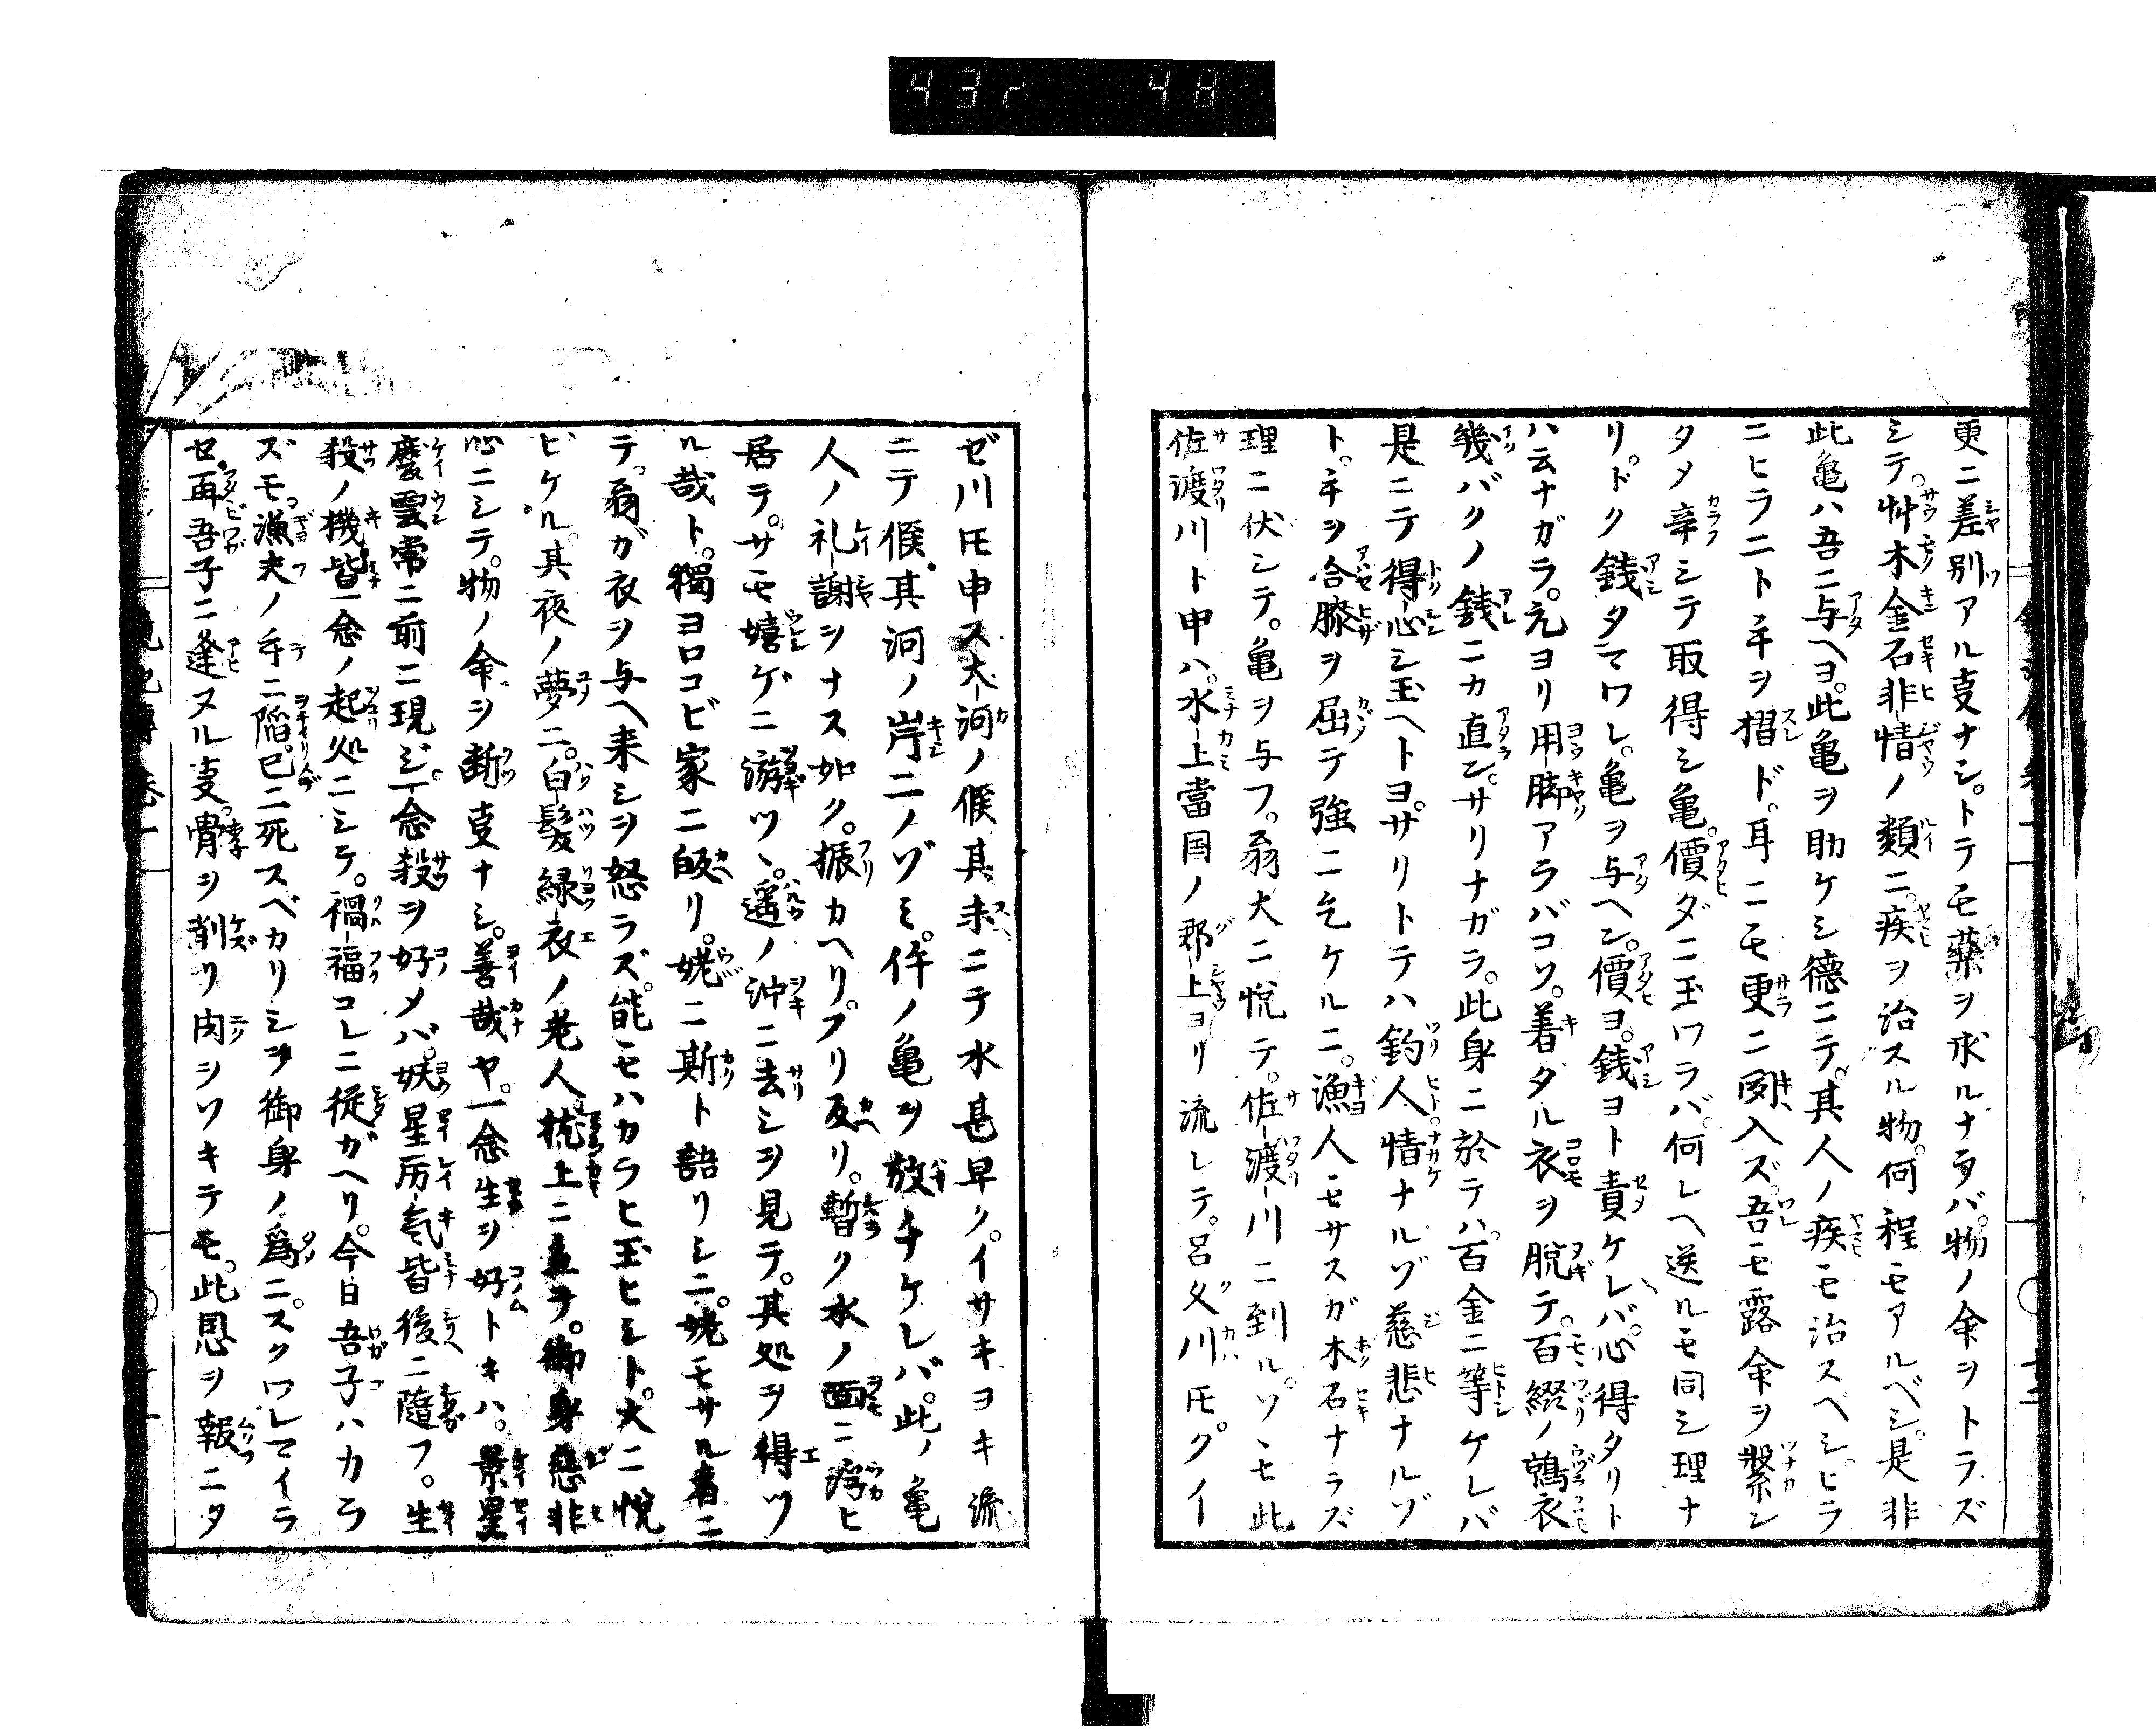 43r 48
更ニ差別アル事ナシ。トテモ薬ヲ求ルナラバ。物ノ命ヲトラズ
シテ。艸木金石非情ノ類ニ。疾ヲ治スル物。何程モアルベシ。是非
此亀ハ吾ニ与ヘヨ。此亀ヲ助ケシ徳ニテ。其人ノ疾モ治スベシ。ヒラ
ニヒラニト手ヲ摺ド。耳ニモ更ニ聞入ズ。吾モ露命ヲ繋ン
タメ辛シテ取得シ亀。價ダニ玉ワラバ。何レヘ送ルモ同シ理ナ
リ。トク銭タマワレ。亀ヲ与ヘン。價ヨ。銭ヨト責ケレバ。心得タリト
ハ云ナガラ。元ヨリ用脚アラバコソ。着タル衣ヲ脱テ。百綴ノ鶉衣
幾バクノ銭ニカ直ン。サリナガラ。此身ニ於テハ。百金ニ等ケレバ
是ニテ得心シ玉ヘトヨ。サリトテハ釣人情ナルゾ慈悲ナルゾ
ト。手ヲ合膝ヲ屈テ強ニ乞ケルニ。漁人モサスガ木石ナラズ
理ニ伏シテ。亀ヲ与フ。翁大ニ悦テ。佐渡川ニ到ル。ソモ此
佐渡川ト申ハ。水上當国ノ郡上ヨリ流レテ。呂久川トモ。クイ
ゼ川トモ申ス大河ノ候其末ニテ水甚早ク。イサキヨキ流
ニテ候。其河ノ岸ニノゾミ。件ノ亀ヲ放チケレバ。此ノ亀
人ノ礼謝ヲナス如ク。振カヘリ。フリ反リ。暫ク水ノ面ニ浮ヒ
居テ。サモ嬉ゲニ游ツヽ。遥ノ沖ニ去シヲ見テ。其処ヲ得ツ
ル哉ト。獨ヨロコビ家ニ皈リ。姥ニ斯ト語リシニ。姥モサル者ニ
テ。翁ガ衣ヲ与ヘ来シヲ怒ラズ。能モハカラヒ玉ヒシト。大ニ悦
ビケル。其夜ノ夢ニ。白髪緑衣ノ老人枕上ニ立テ。御身慈非
心ニシテ。物ノ命ヲ断事ナシ。善哉ヤ。一念生ヲ好トキハ。景星
慶雲常ニ前ニ現ジ。一念殺ヲ好メバ。妖星厉気皆後ニ随フ。生
殺ノ機皆一念ノ起処ニシテ。禍福コレニ従ガヘリ。今日吾子ハカラ
ズモ漁夫ノ手ニ陥。已ニ死スベカリシヲ御身ノ為ニ。スクワレマイラ
セ。再吾子ニ逢ヌル事。骨ヲ削リ肉ヲソキテモ。此恩ヲ報ニタ